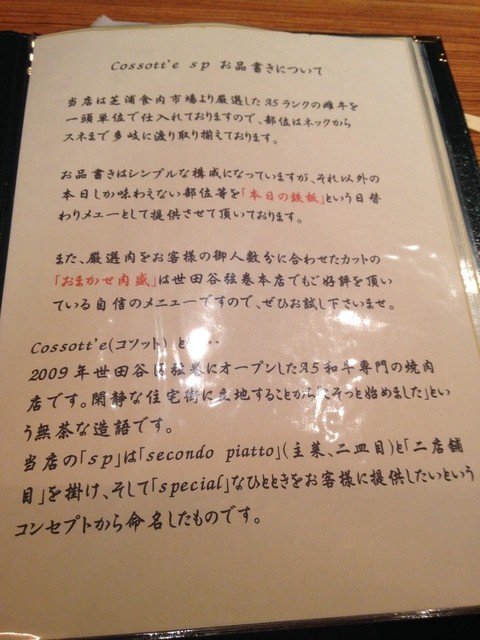 Cossott'e sp お品書きについて
当店は芝浦食肉市場より厳選したA5ランクの雌牛を
一頭単位で仕入れておりますので、部位はネックから
スネまで多岐に渡り取り揃えております。
お品書きはシンプルな構成になっていますが、それ以外の
本日しか味わえない部位等を「本日の鉄板」という日替
わりメニューとして提供させて頂いております。
また、厳選肉をお客様の御人数分に合わせたカットの
「おまかせ肉盛」は世田谷弦巻本店でもご好評を頂い
ている自信のメニューですので、ぜひお試し下さいませ。
Cossott'e(コソット) と・・・
2009年世田谷区弦巻にオープンしたA5和牛専門の焼肉
店です。閑静な住宅街に立地することから「こそっと始めました」とい
う無茶な造語です。
当店の「sp」は「secondo piatto」(主菜、二皿目)と「二店舗
目」を掛け、そして「special」なひとときをお客様に提供したいという
コンセプトから命名したものです。